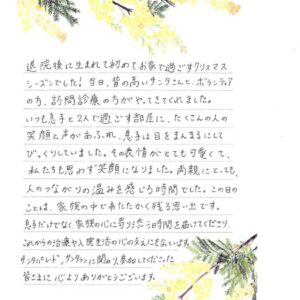 退院後に生まれて初めてお家で過ごすクリスマス
シーズンでした！当日、背の高いサンタさんと、ボランティア
の方、訪問診療の方がやってきてくれました。
いつも息子と2人で過ごす部屋に、たくさんの人の
笑顔と声があふれ、息子は目をまんまるにして
びっくりしていました。その表情がとても可愛くて、
私たちも思わず笑顔になりました。両親にとっても、
人のつながりの温みを感じる時間でした。この日の
ことは、家族の中であたたかく残る思い出です。
息子だけでなく家族の心に寄り添う時間を届けてくださり、
これからの治療や入院生活の心の支えになっています。
サンタパレード、サンタランに関わり参加してくださった
皆さまに心よりありがとうございます。